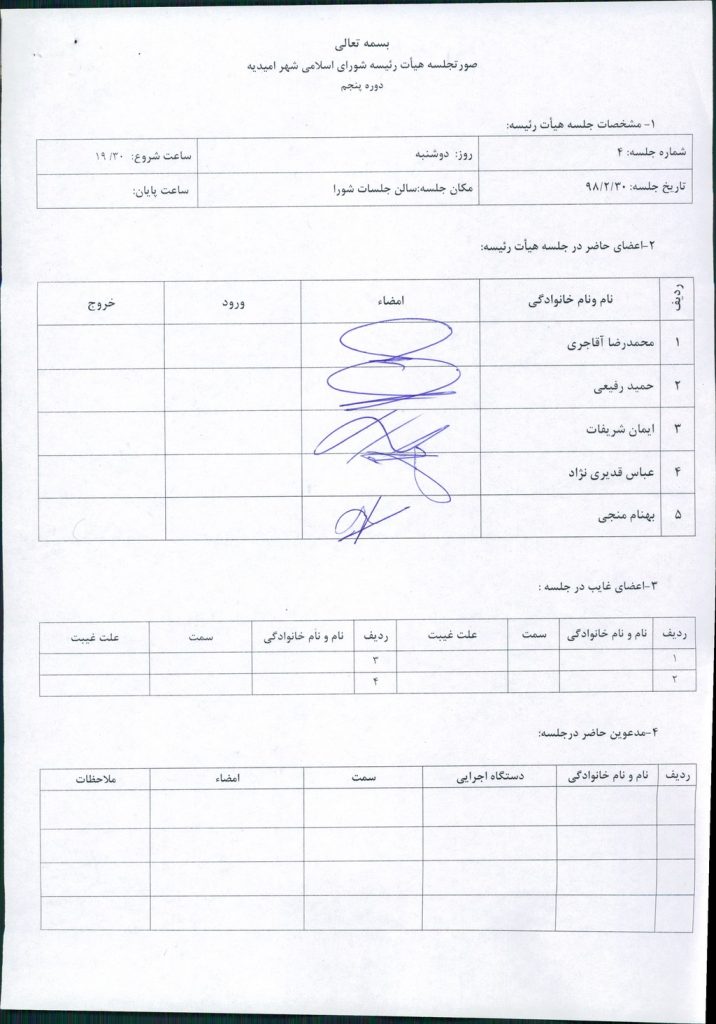 بسمه تعالی
صورتجلسه هیأت رئیسه شورای اسلامی شهر امیدیه
دوره پنجم
۱- مشخصات جلسه هیأت رئیسه:
شماره جلسه: ۴ روز: دوشنبه ساعت شروع: ۱۹/۳۰
تاریخ جلسه: ۹۸/۲/۳۰ مکان جلسه:سالن جلسات شورا ساعت پایان:
۲-اعضای حاضر در جلسه هیأت رئیسه:
ردیف نام ونام خانوادگی امضاء ورود خروج
۱ محمدرضا آقاجری
۲ حمید رفیعی
۳ ایمان شریفات
۴ عباس قدیری نژاد
۵ بهنام منجی
۳-اعضای غایب در جلسه :
ردیف نام و نام خانوادگی سمت علت غیبت ردیف نام و نام خانوادگی سمت علت غیبت
۱ ۳
۲ ۴
۴-مدعوین حاضر درجلسه:
ردیف نام و نام خانوادگی دستگاه اجرایی سمت امضاء ملاحظات